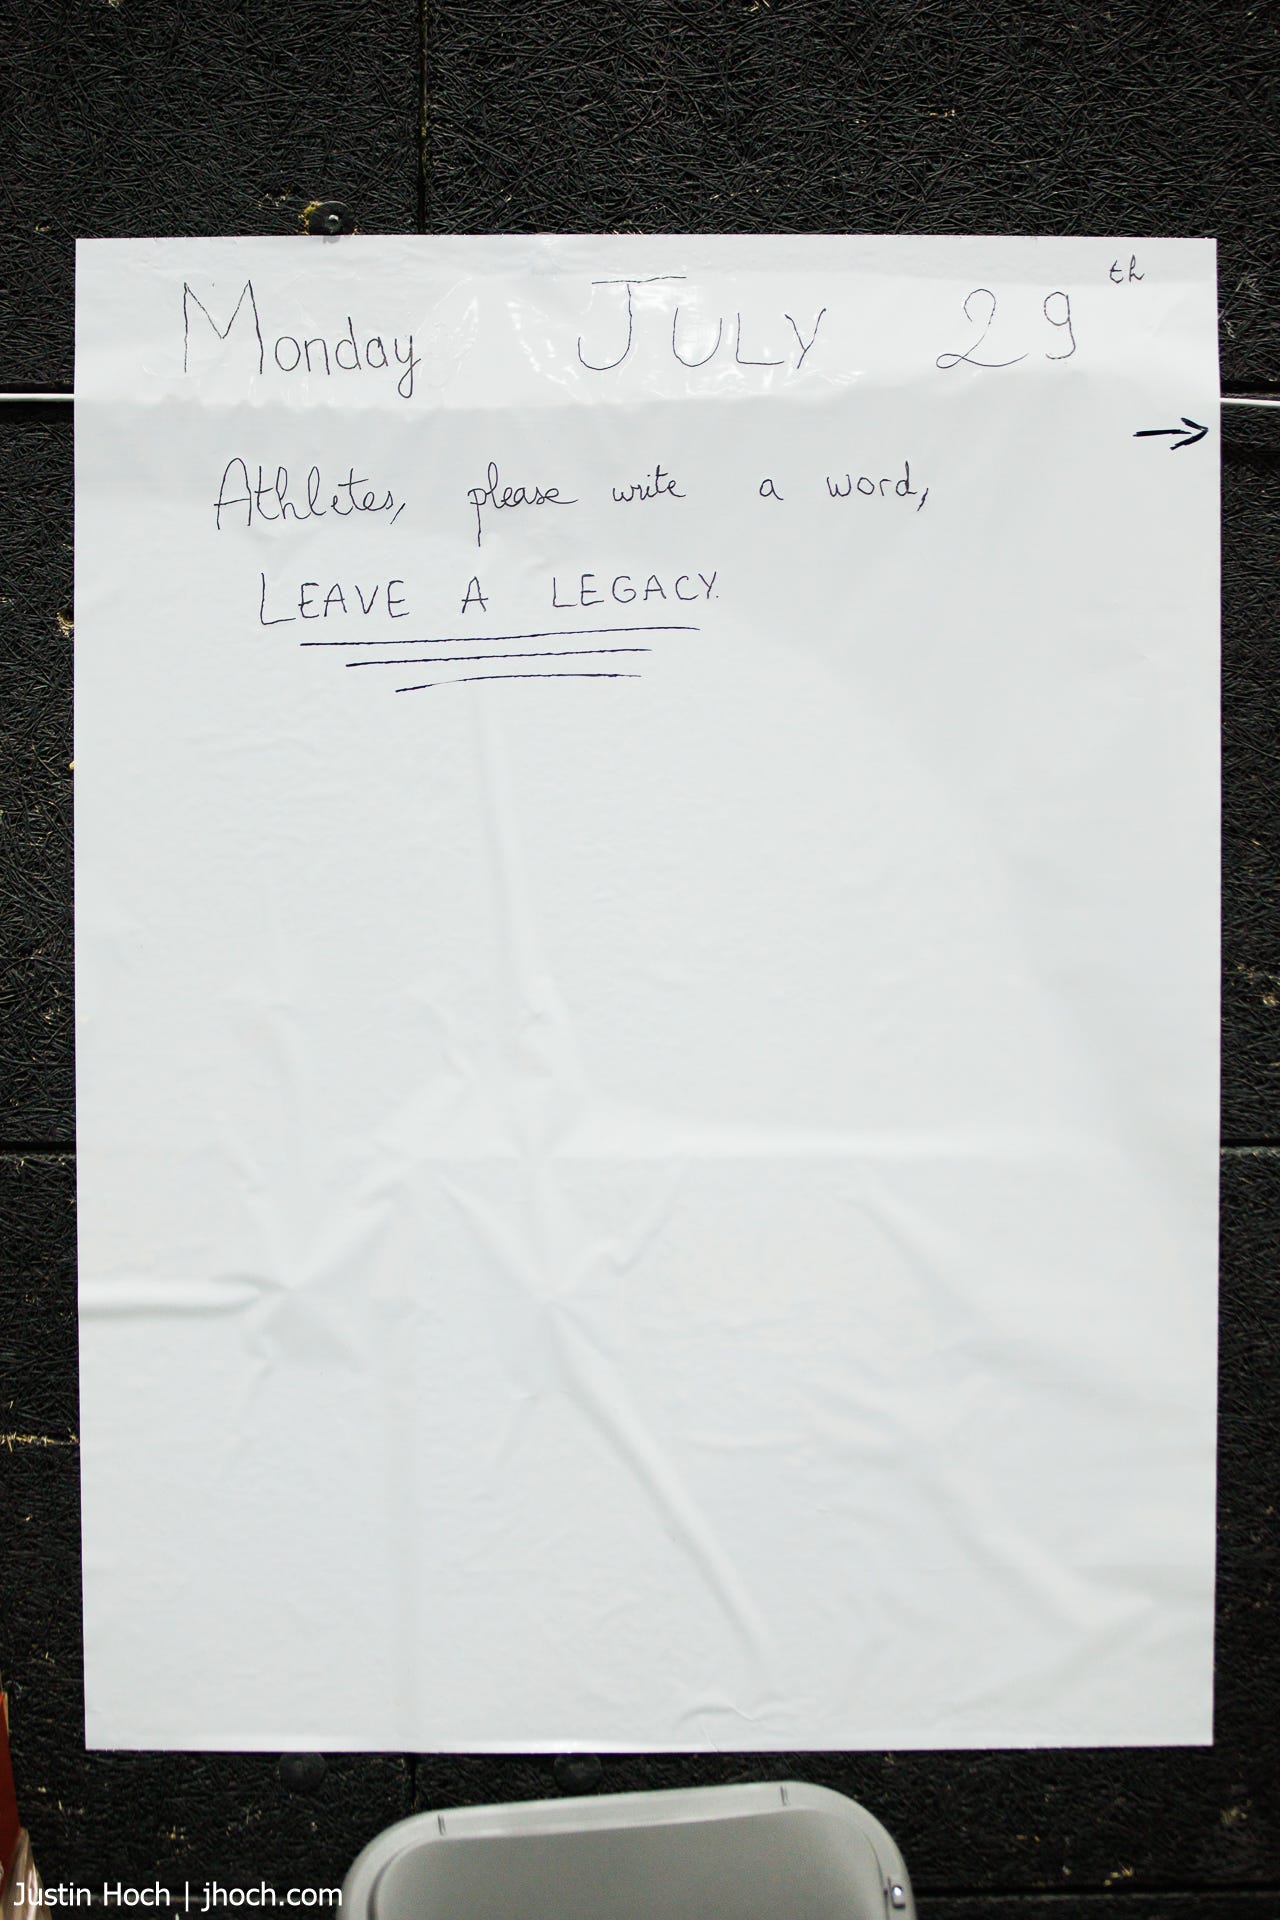 Monday JULY 29th
→
Athletes, please write a word,
LEAVE A LEGACY.
Justin Hoch | jhoch.com